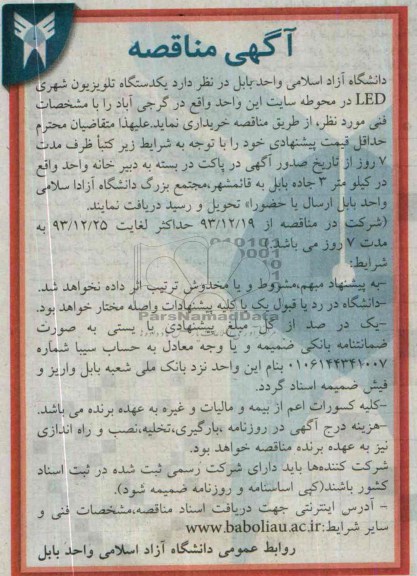 آگهی مناقصه
دانشگاه آزاد اسلامی واحد بابل در نظر دارد یکدستگاه تلویزیون شهری
LED در محوطه سایت این واحد واقع در گرجی آباد را با مشخصات
فنی مورد نظر، از طریق مناقصه خریداری نماید.علیهذا متقاضیان محترم
حداقل قیمت پیشنهادی خود را با توجه به شرایط زیر کتباً ظرف مدت
۷ روز از تاریخ صدور آگهی در پاکت در بسته به دبیر خانه واحد واقع
در کیلو متر ۳ جاده بابل به قائمشهر،مجتمع بزرگ دانشگاه آزادا سلامی
واحد بابل ارسال یا حضورا» تحویل و رسید دریافت نمایند.
(شرکت در مناقصه از ۹۳/۱۲/۱۹ حداکثر لغایت ۹۳/۱۲/۲۵ به
مدت ۷ روز می باشد.)
شرایط:
-به پیشنهاد مبهم،مشروط و یا مخدوش ترتیب اثر داده نخواهد شد.
-دانشگاه در رد یا قبول یک یا کلیه پیشنهادات واصله مختار خواهد بود.
ParsNamadData
-یک در صد از کل مبلغ پیشنهادی یا پستی به صورت
ضمانتنامه بانکی ضمیمه و یا وجه معادل به حساب سیبا شماره
۰۱۰۶۱۴۴۳۴۱۰۰۷ بنام این واحد نزد بانک ملی شعبه بابل واریز و
فیش ضمیمه اسناد گردد.
-کلیه کسورات اعم از بیمه و مالیات و غیره به عهده برنده می باشد.
-هزینه درج آگهی در روزنامه ،بارگیری،تخلیه،نصب و راه اندازی
نیز به عهده برنده مناقصه خواهد بود.
شرکت کننده‌ها باید دارای شرکت رسمی ثبت شده در ثبت اسناد
کشور باشند(کپی اساسنامه و روزنامه ضمیمه شود).
- آدرس اینترنتی جهت دریافت اسناد مناقصه،مشخصات فنی و
سایر شرایط:www.baboliau.ac.ir
روابط عمومی دانشگاه آزاد اسلامی واحد بابل